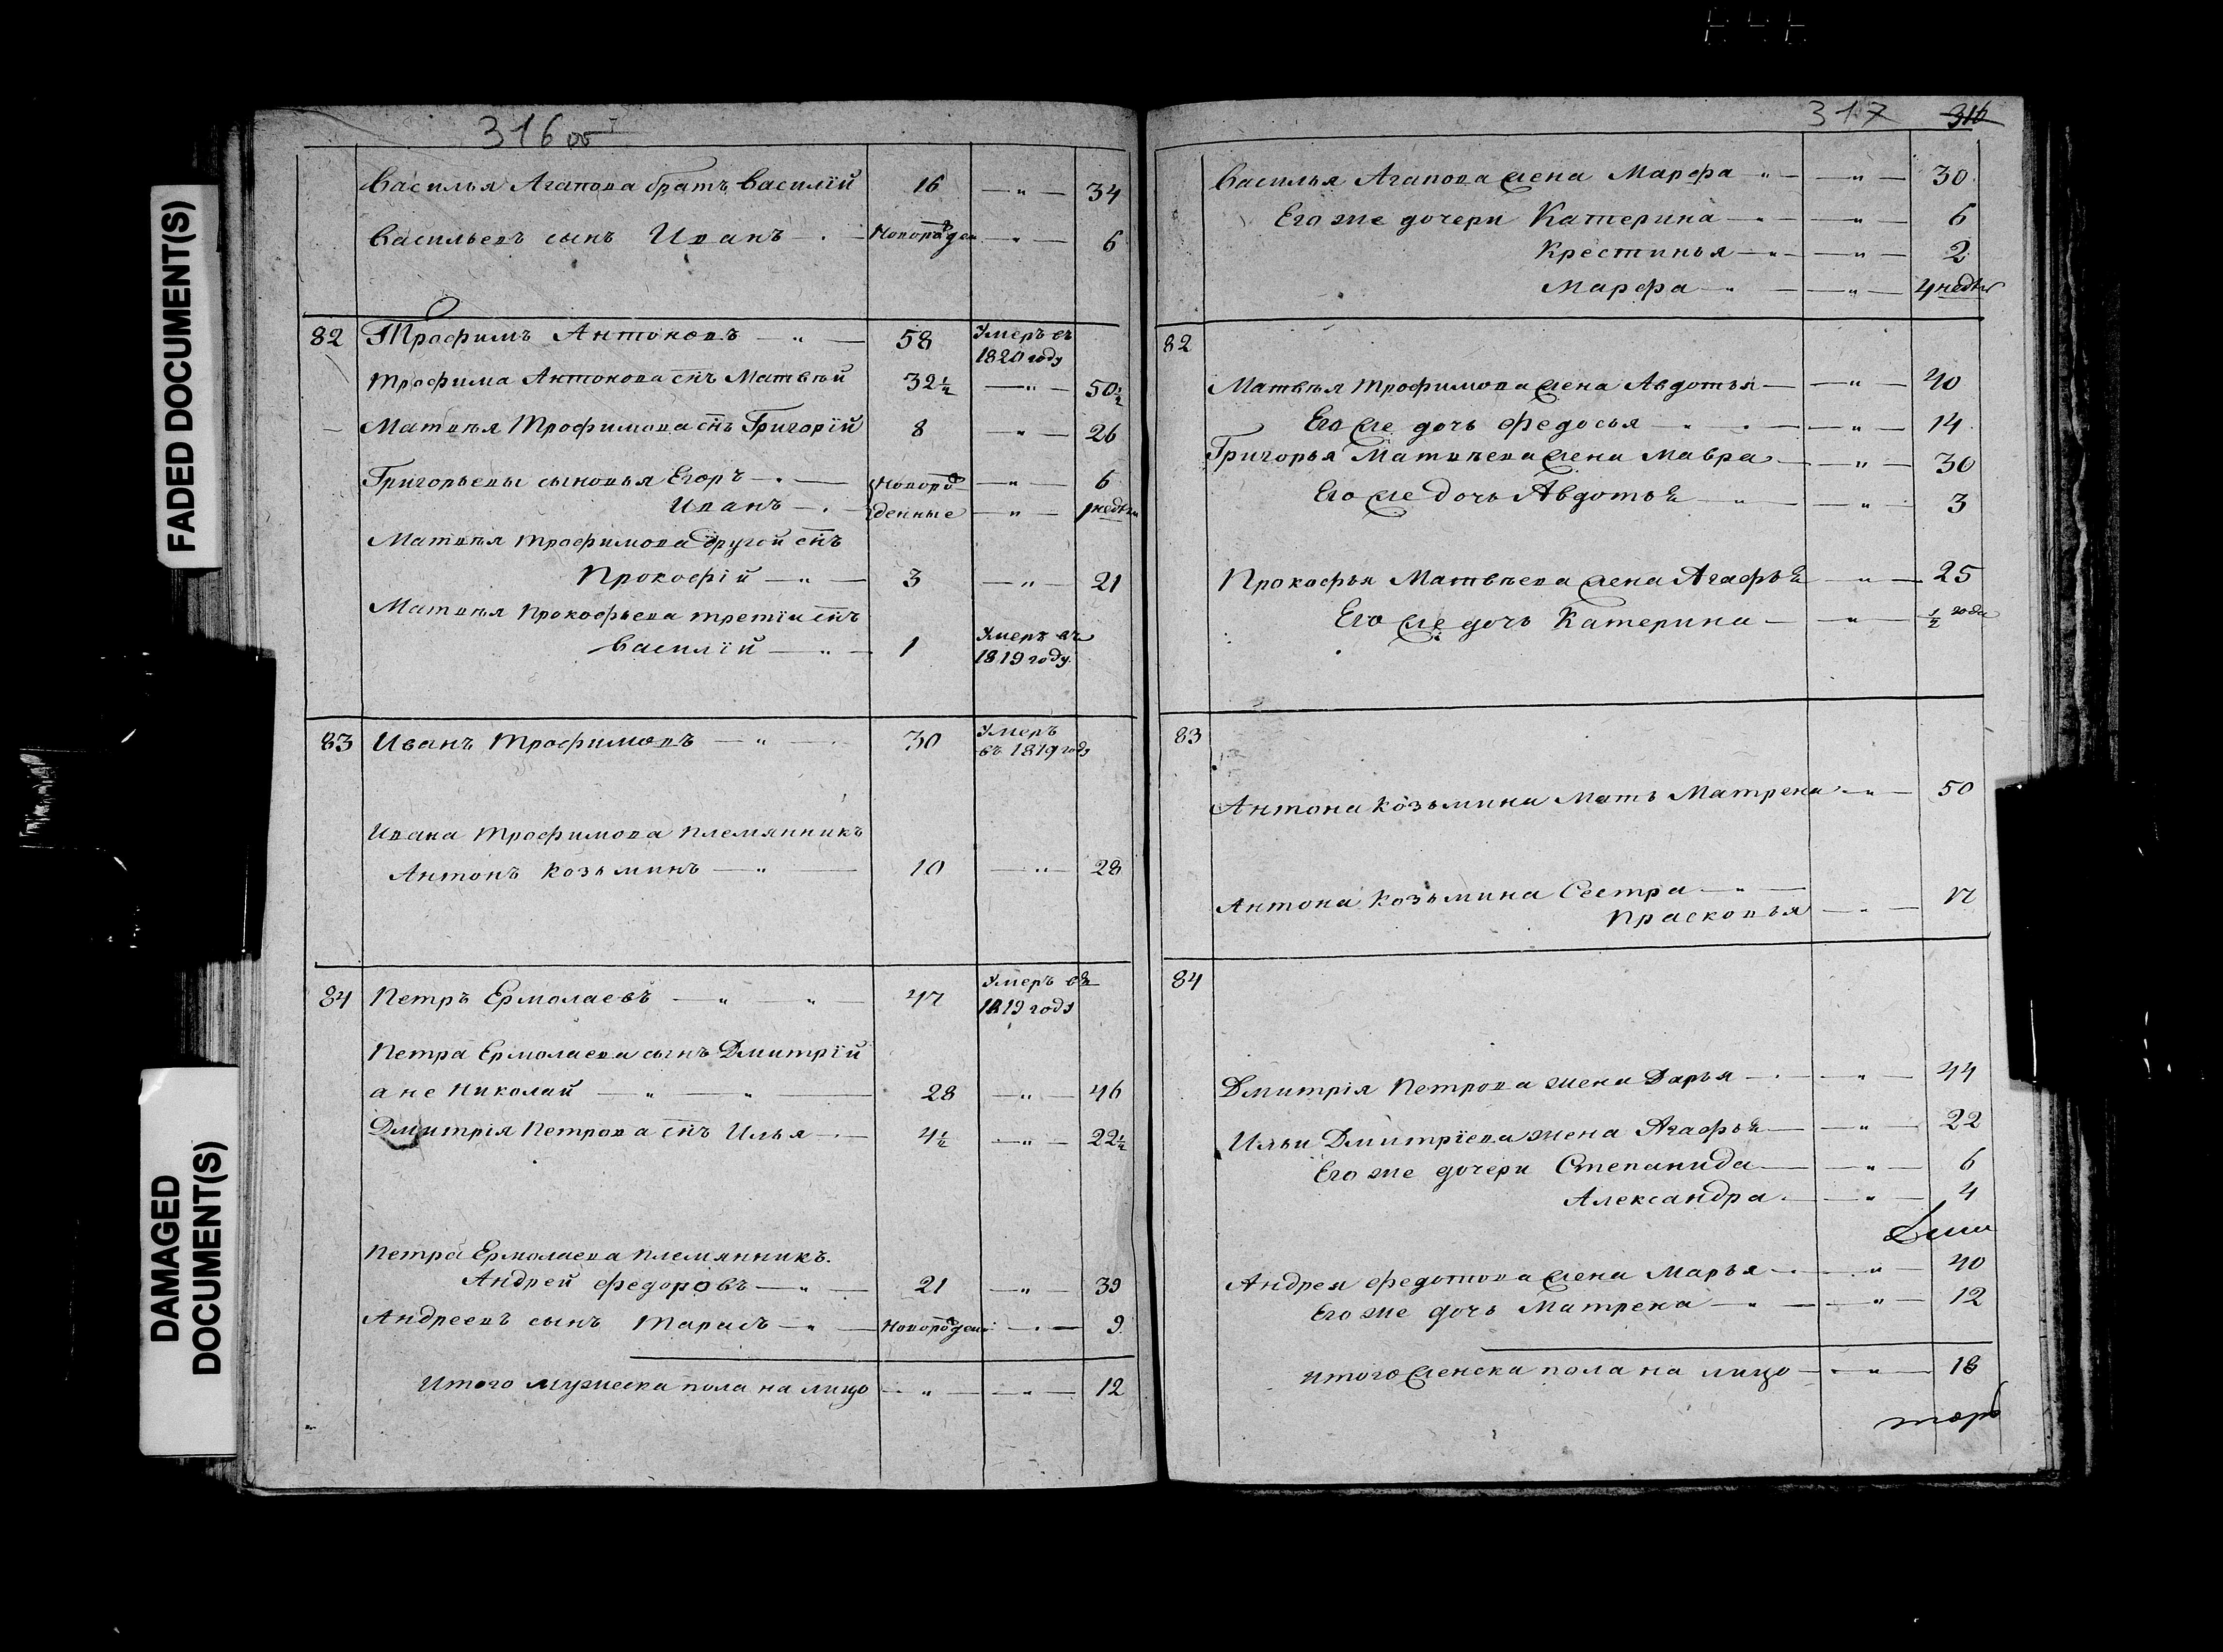 FADED DOCUMENT(S)
DAMAGED
DOCUMENT(S)
316 об
Василья Агапова братъ Василій 16 — " — 34
Васильевъ сынъ Иванъ — . — Новорожден — " — 6
82 Трофимъ Антоновъ — " — 58 Умеръ въ
1820 году
Трофима Антонова снъ Матвѣй 32½ — " — 50½
Матвѣя Трофимова снъ Григорій 8 — " — 26
Григорьевы сыновья Егоръ — . — Новорож — " — 6
Иванъ — . — денные — " — 1 недѣли
Матвѣя Трофимова другой снъ
Прокофій — " — 3 — " — 21
Матвѣя Прокофьева третій снъ
Василій — " — 1 Умеръ въ
1819 году
83 Иванъ Трофимовъ — " — 30 Умеръ
въ 1819 году
Ивана Трофимова племянникъ
Антонъ Козьминъ — " — 10 — " — 28
84 Петръ Ермолаевъ — " " — 47 Умеръ въ
1819 году
Петра Ермолаева сынъ Дмитрій
а не Николай — " — " — 28 — " — 46
Дмитрія Петрова снъ Илья — . — 4½ — " — 22½
Петра Ермолаева племянникъ.
Андрей Федоровъ — " — 21 — " — 39
Андреевъ сынъ Тарасъ — " — Новорожден — . — 9
Итого мужеска пола на лицо — " — — " — 12
317 316
Василья Агапова жена Марфа — " — — " — 30
Его же дочери Катерина — " — — " — 6
Крестинья — " — — " — 2
Марфа — " — — " — 4 недѣл
82
Матвѣя Трофимова жена Авдотья — — " — 40
Его же дочь Федосья — " — . — " — 14
Григорья Матвѣева жена Мавра — — " — 30
Его же дочь Авдотья — " — — " — 3
Прокофья Матвѣева жена Агафья — " — 25
Его же дочь Катерина — — " — ½ года
83
Антона Козьмина мать Матрена — " — 50
Антона Козьмина Сестра — " —
Прасковья — " — 17
84
Дмитрія Петрова жена Дарья — . — " — 44
Ильи Дмитріева жена Агафья — — " — 22
Его же дочери Степанида — — " — 6
Александра — — " — 4
Андрея Федотова жена Марья — . — " — 40
Его же дочь Матрена — " — — " — 12
Итого женска пола на лицо — . — " — 18